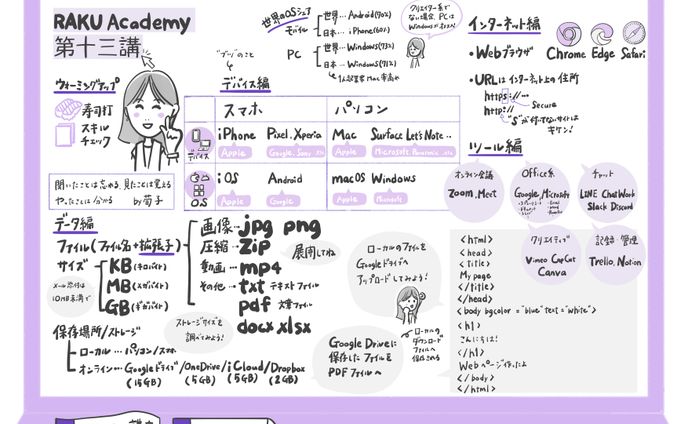 RAKU Academy
第十三講
世界のOSシェア
モバイル
世界… Android(70%)
日本… iPhone(60%)
PC
世界… Windows(73%)
日本… Windows(71%)
クリエイター系で
ない場合、PCは
Windowsが
ウォーミングアップ
寿司打
スキル
チェック
聞いたことは忘れる、見たことは覚える
やったことは分かる by荀子
デバイス編
スマホ パソコン
デバイス
iPhone Pixel, Xperia Mac Surface Let's Note..
Apple Google, Sony Apple Microsoft, Panasonic
OS
iOS Android macOS Windows
Apple Google Apple Microsoft
インターネット編
・Webブラウザ Chrome Edge Safari
・URLはインターネット上の住所
https://…
Secure
http://
"S"が付いてないサイトは
キケン!
ツール編
オンライン会議
Zoom, Meet
Office系
Google, Microsoft
チャット
LINE ChatWork
Slack Discord
クリエイティブ
Vimeo CapCut
Canva
記録・管理
Trello, Notion
データ編
ファイル(ファイル名+拡張子)
画像… jpg png
圧縮… Zip 展開してね
動画… mp4
その他… txt テキストファイル
pdf 文書ファイル
docx xlsx
サイズ
KB(キロバイト)
MB(メガバイト)
GB(ギガバイト)
メール添付は
10MB未満で
保存場所/ストレージ
ローカル… パソコン/スマホ
オンライン… Googleドライブ/OneDrive/iCloud/Dropbox
(15GB) (5GB) (5GB) (2GB)
ストレージサイズを
調べてみよう!
ローカルのファイルを
Googleドライブへ
アップロードしてみよう!
Google Driveに
保存したファイルを
PDFファイルへ
ローカルの
ダウンロード
ファイルへ
保存される
<html>
<head>
<title>
My page
</title>
</head>
<body bgcolor="blue" text="white">
<h1>
こんにちは!
</h1>
Webページ作ったよ
</body>
</html>